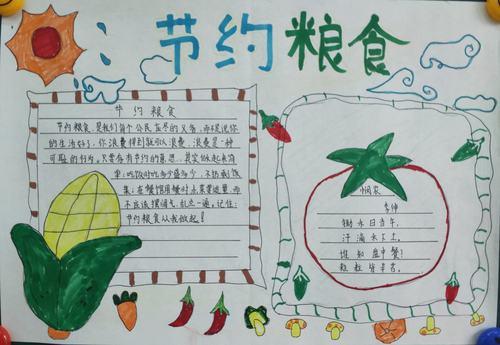 节约粮食
节约粮食
节约粮食，是我们每个公民应尽的义务，而不是说你
的生活好了，你浪费得起就可以浪费，浪费是一种
可耻的行为，只要存有节约的意思，其实做起来简
单：吃饭时吃多少盛多少，不扔剩饭
菜；在餐馆用餐时点菜要适量，而
不应该摆阔气，乱点一通，记住：
节约粮食从我做起！
悯农
李绅
锄禾日当午，
汗滴禾下土，
谁知盘中餐！
粒粒皆辛苦。